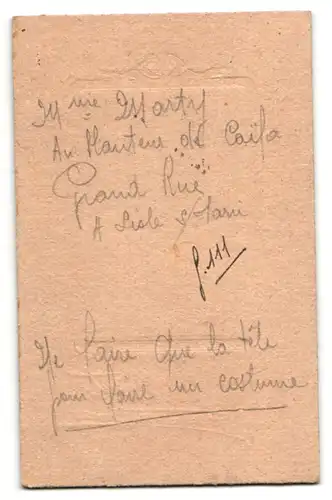 Mme Marty
Au Planteur de Caïfa
Grand Rue
A Lisle s/ Tarn
f. 111
Ne faire que la tête
pour faire un costume